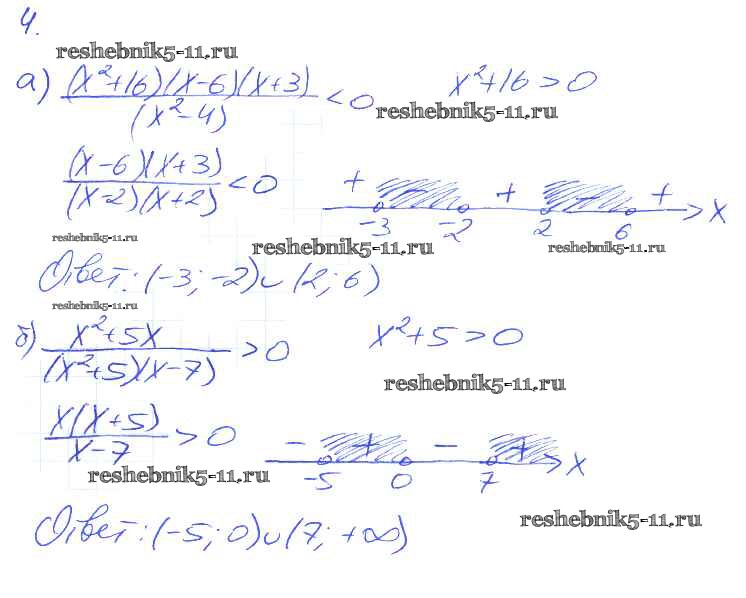 4.
reshebnik5-11.ru
а) (x²+16)(x-6)(x+3) / (x²-4) < 0    x²+16>0
reshebnik5-11.ru
(x-6)(x+3) / (x-2)(x+2) < 0    + - + - +
-3 -2 2 6 x
reshebnik5-11.ru reshebnik5-11.ru reshebnik5-11.ru
Ответ: (-3; -2)∪(2; 6)
reshebnik5-11.ru
б) x²+5x / (x²+5)(x-7) > 0    x²+5>0
reshebnik5-11.ru
x(x+5) / x-7 > 0    - + - +
-5 0 7 x
reshebnik5-11.ru
Ответ: (-5; 0)∪(7; +∞)
reshebnik5-11.ru